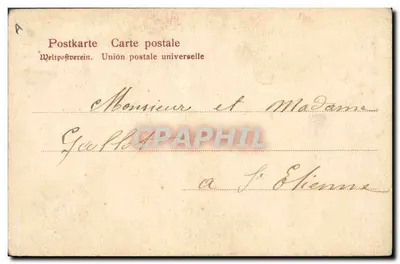 Postkarte Carte postale
Weltpostverein. Union postale universelle
Monsieur et Madame
CPAPHIL
a St Etienne